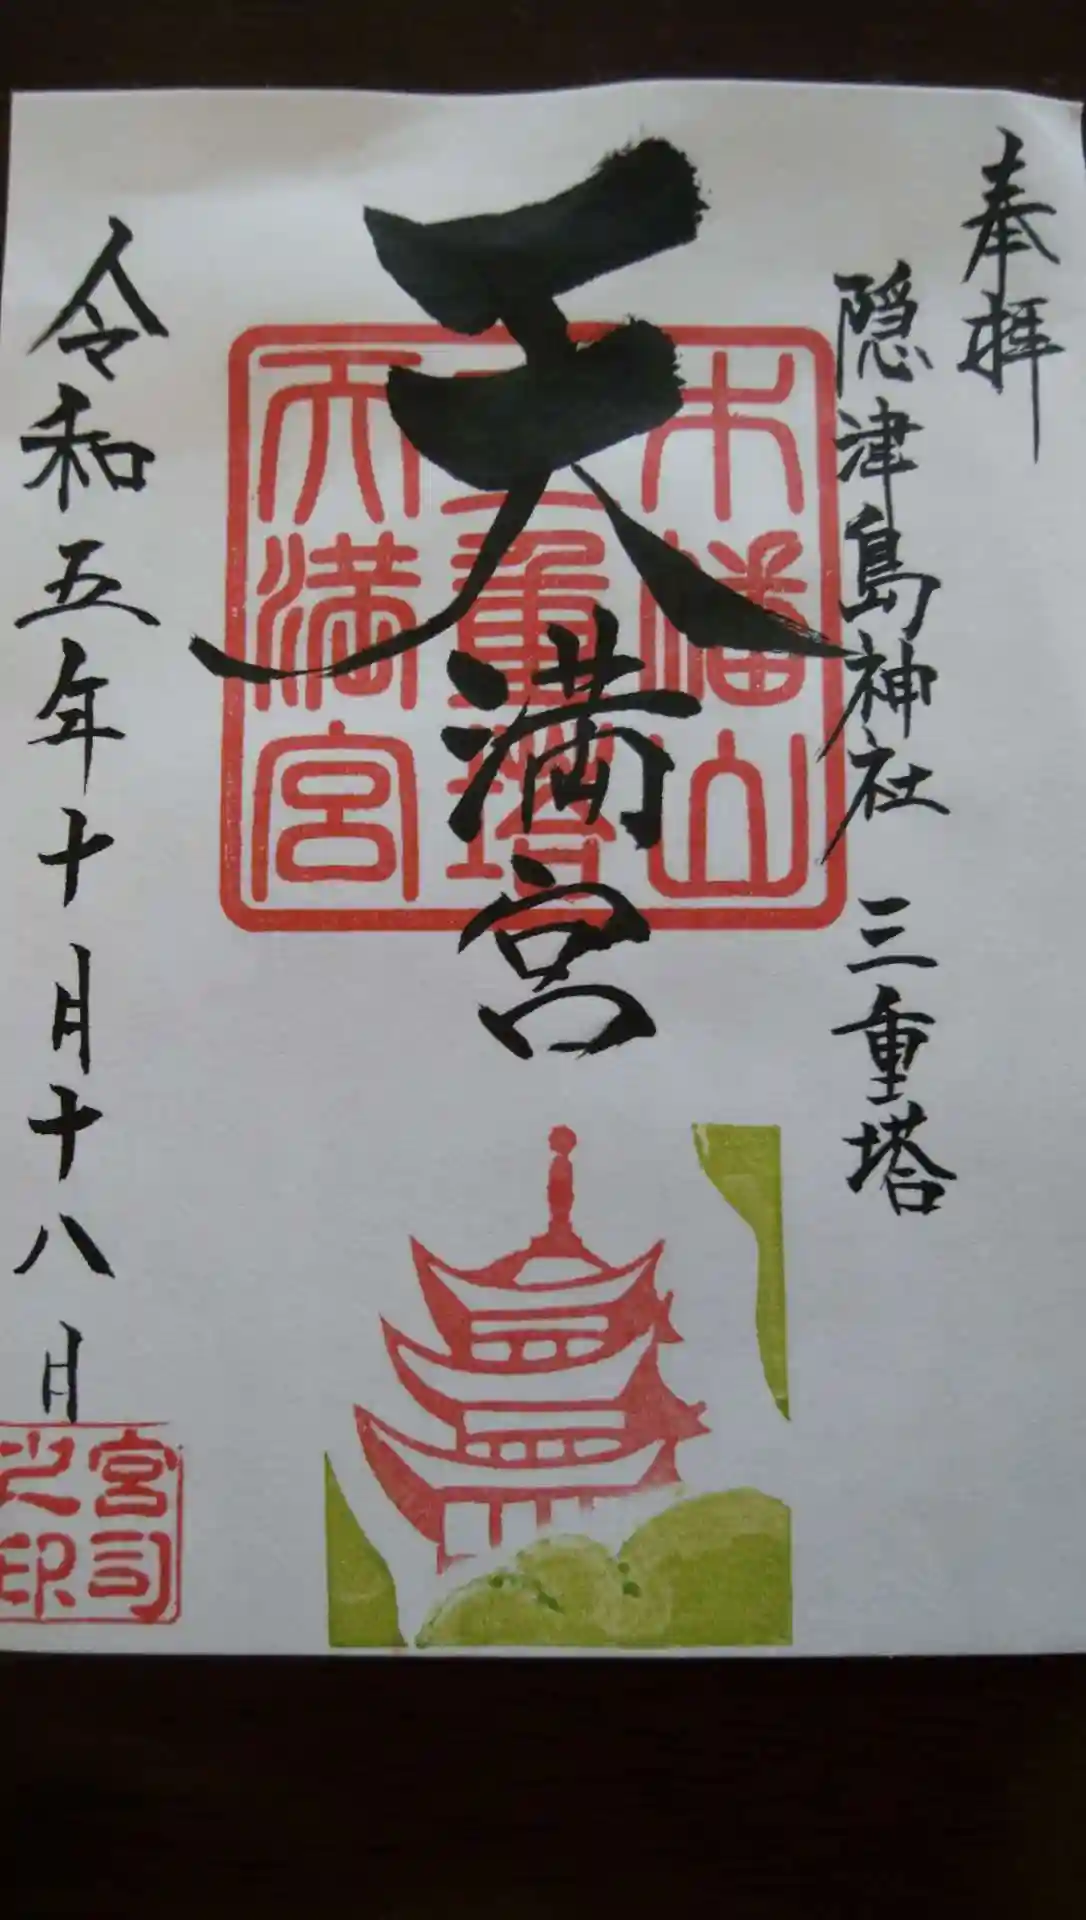 奉拝
隠津島神社 三重塔
天満宮
木幡山
三重塔
天満宮
令和五年十月十八日
宮司
之印